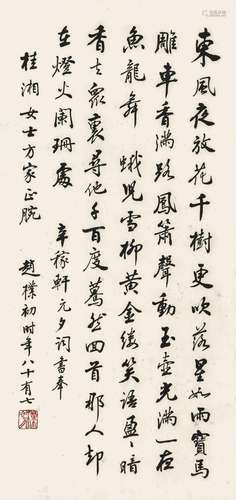 東風夜放花千樹更吹落星如雨寶馬
雕車香滿路鳳簫聲動玉壺光轉一夜
魚龍舞 蛾兒雪柳黃金縷笑語盈々暗
香去眾裏尋他千百度驀然回首那人却
在燈火闌珊處 辛稼軒元夕詞書奉
桂湘女士方家正腕
趙樸初時年八十有七